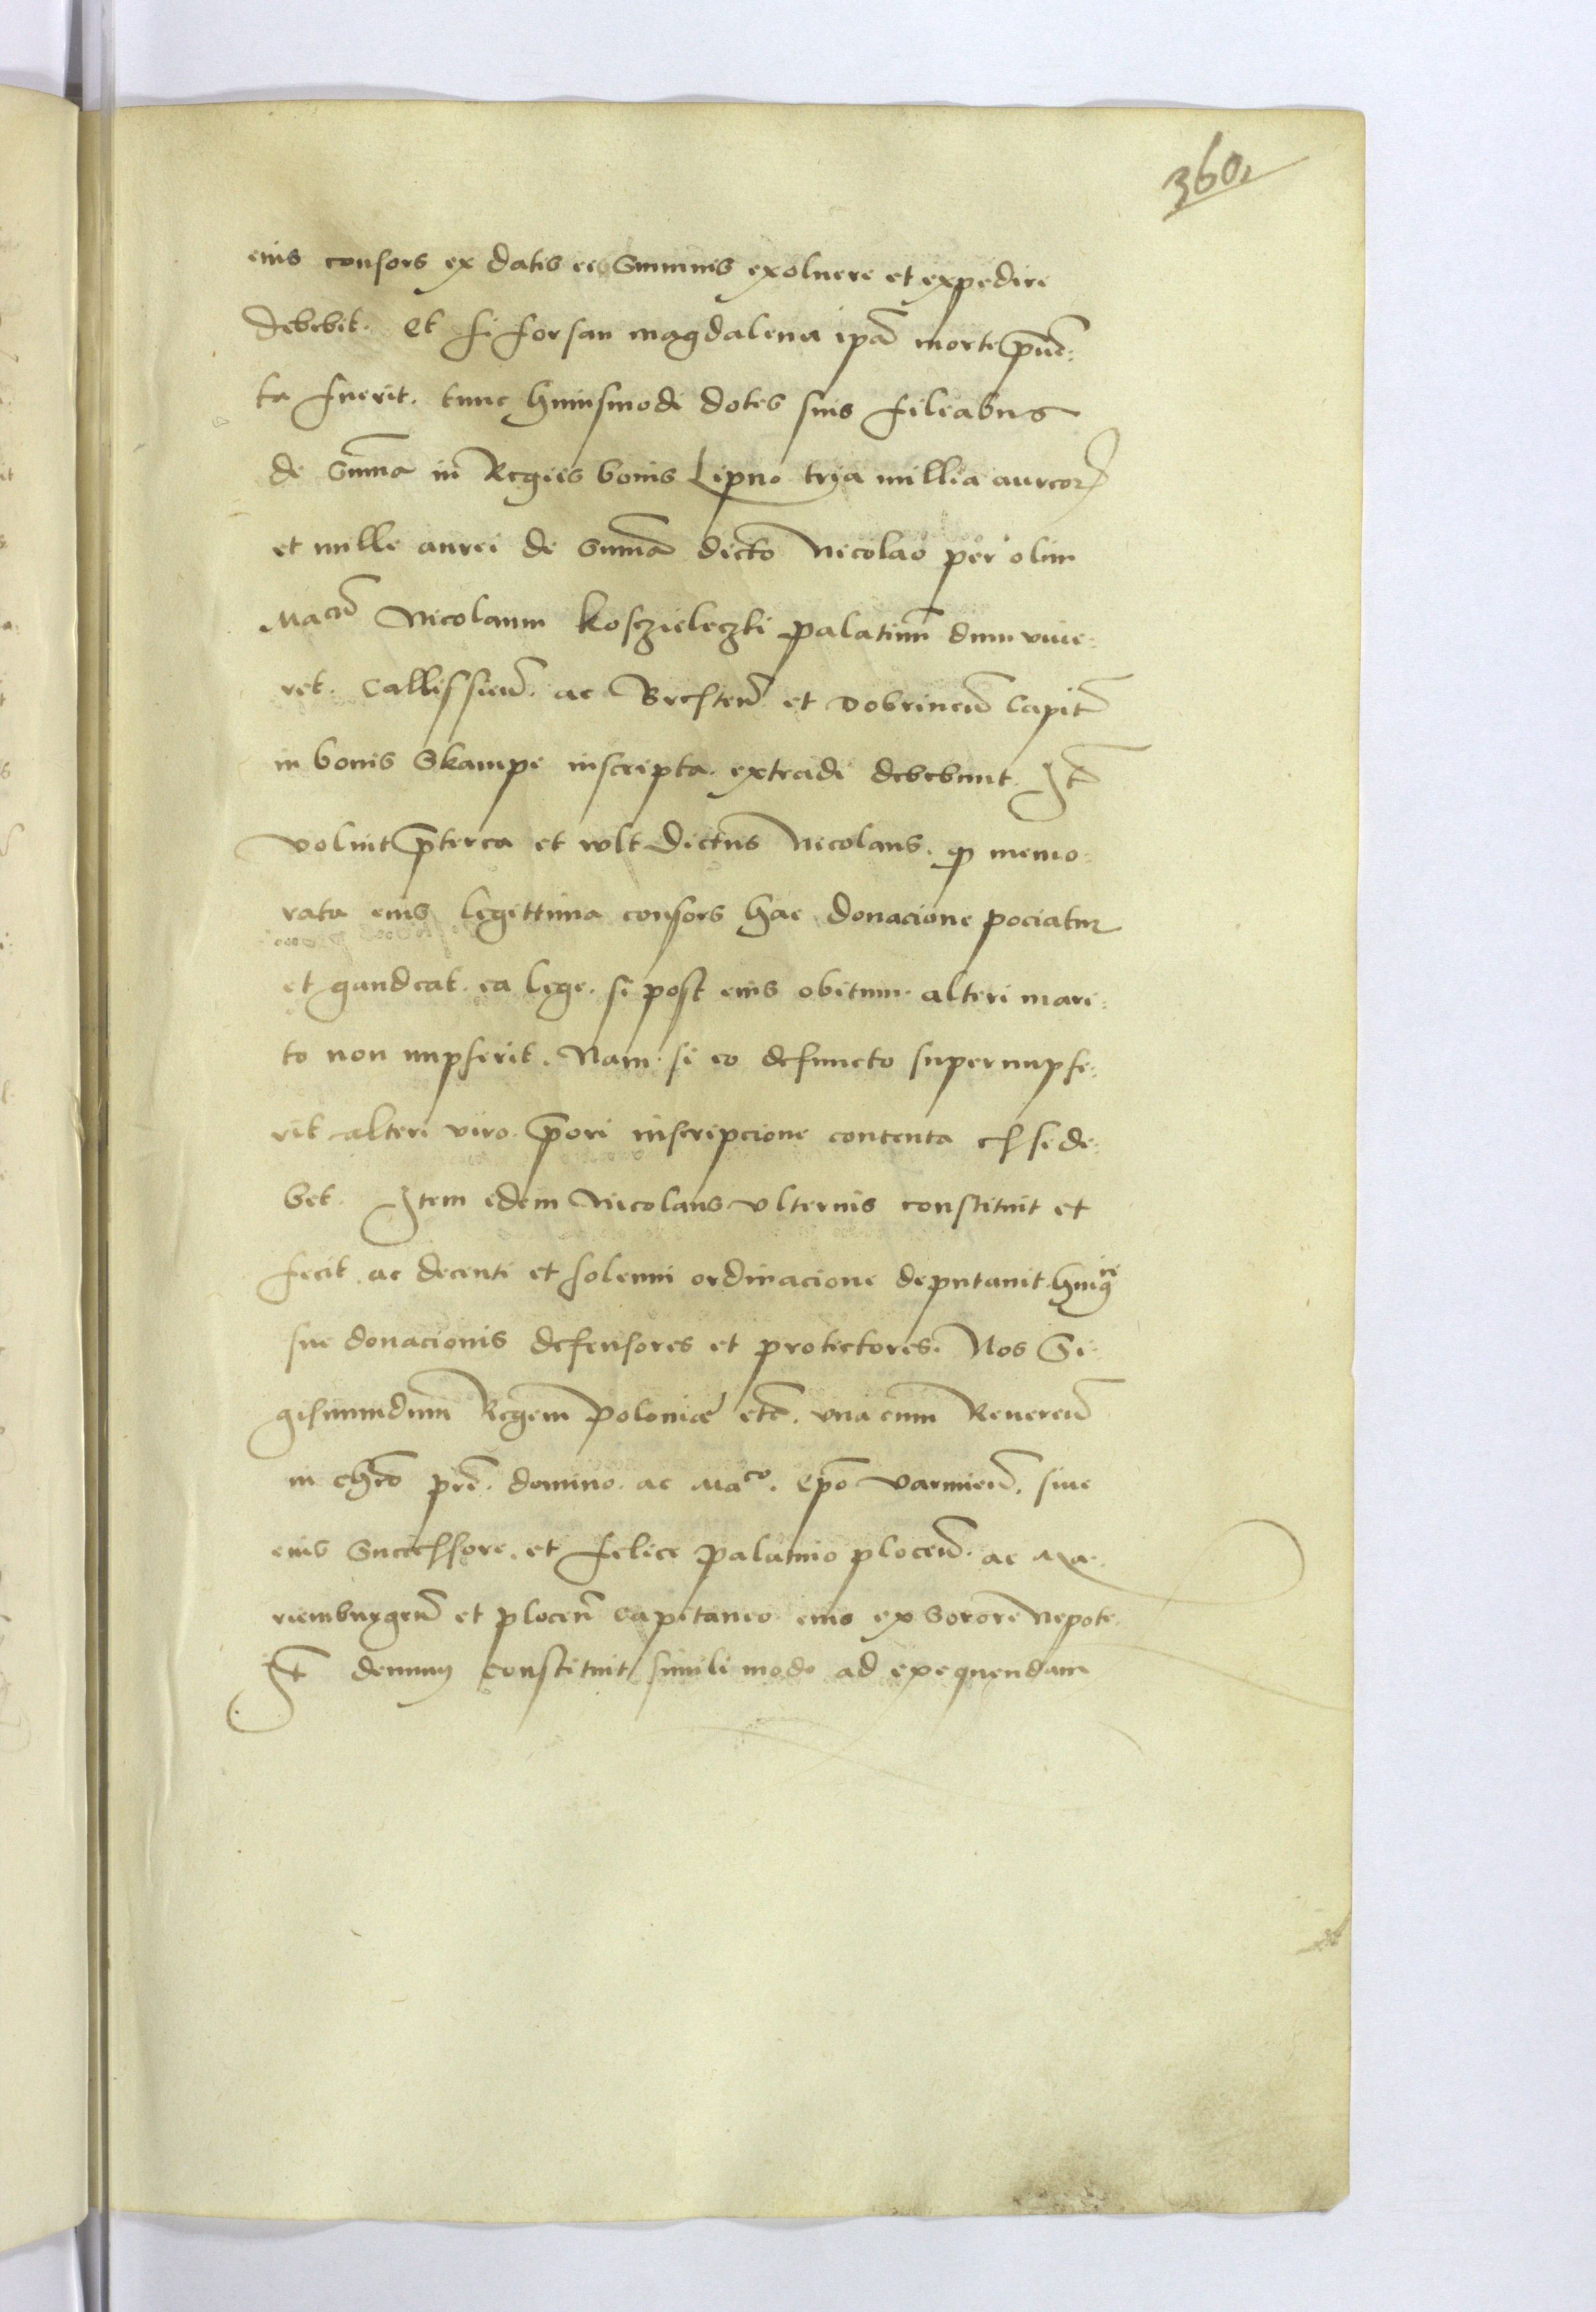 360.
eius consors ex datis ei Summis exoluere et expedire
debebit. Et si forsan magdalena ipã morte p̃uē:
ta fuerit. tunc huiusmodi dotes suis filiabus
de Sum̃a in Regiis bonis Lipno trÿa millia aureor̃
et mille aurei de Sum̃a dicto Nicolao per olim
Macũ Nicolaum Kosczieleczki palatinũ dum viue:
ret. Callissieñ. ac Bresteñ et Dobrineñ Capit̃
in bonis Skampe inscripta. extradi debebunt. It̃
voluit p̃terea et wlt dictus Nicolaus. q̃ memo:
rata eius legittima consors hac donacione pociatur
et gaudeat. ea lege. si post eius obitum. alteri mari:
to non nupserit. Nam. si eo defuncto supernupse:
rit alteri viro. p̃ori inscripcione contenta esse de:
bet. Item idem Nicolaus vlterius constituit et
fecit. ac decenti et solenni ordinacione deputauit. huiꝰ
sue donacionis defensores et protectores. Nos Si:
gismundum Regem Poloniæ etc̃. vna cum Reuereñ
in chr̃o pr̃e. domino. ac Maco. Ep̃o Varmieñ. siue
eius Successore. et Felice palatino ploceñ. ac Ma:
riemburgeñ et ploceñ Capitaneo. eius ex Sorore Nepote.
It̃ demum constituit simili modo ad exequendam